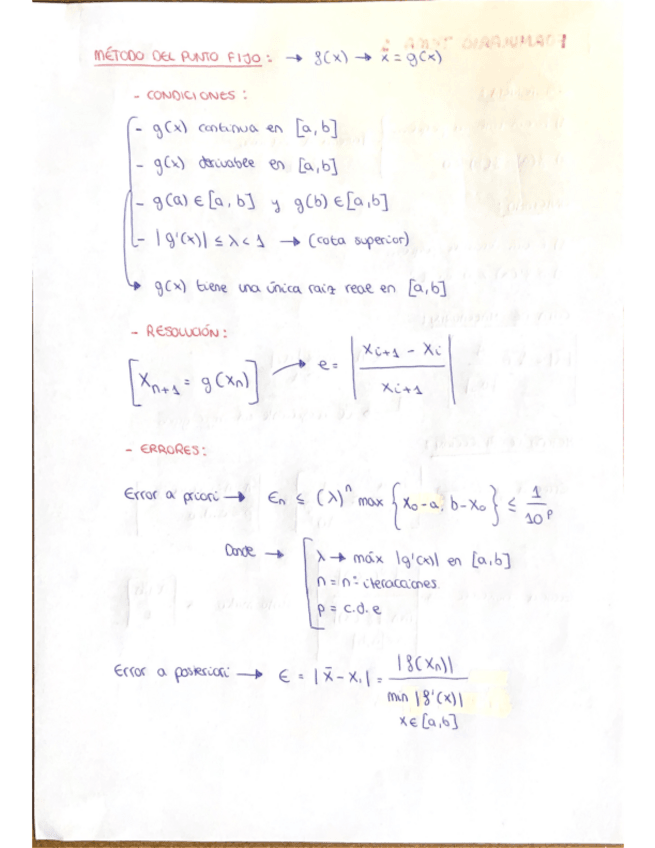 MÉTODO DEL PUNTO FIJO: → f(x) → x = g(x)
- CONDICIONES:
- g(x) continua en [a,b]
- g(x) derivable en [a,b]
- g(a) ∈ [a,b] y g(b) ∈ [a,b]
- |g'(x)| ≤ λ < 1 → (cota superior)
→ g(x) tiene una única raíz real en [a,b]
- RESOLUCIÓN:
[Xn+1 = g(Xn)] → e = |(Xi+1 - Xi) / Xi+1|
- ERRORES:
Error a priori → En ≤ (λ)^n max {x0-a, b-x0} ≤ 1/10^p
Donde → λ → máx |g'(x)| en [a,b]
n = nº iteracciones
p = c.d.e
Error a posteriori → E = |x̄ - x1| = |f(xn)| / min |f'(x)|
x ∈ [a,b]